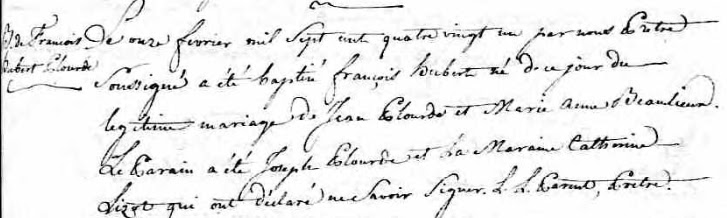 B. de François
hubert Plourde
Le onze fevrier mil sept cent quatre vingt un par nous Prêtre
Soussigné a été baptisé françois hubert né de ce jour du
legitime mariage de Jean Plourde et Marie Anne Beaulieux.
Le Parain a été Joseph Plourde et la Maraine Catherine
Lizot qui ont déclaré ne savoir signer. L. L. Parent, Prêtre.